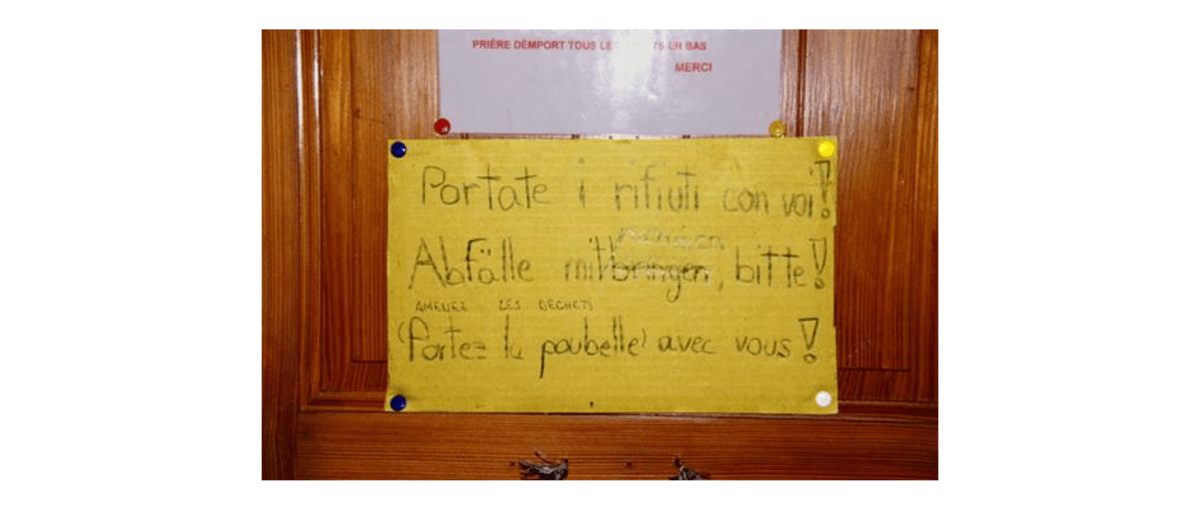 PRIÈRE DÈMPORT TOUS EN BAS
MERCI
Portate i rifiuti con voi!
Abfälle mitbringen, bitte!
AMENEZ LES DECHETS
(Portez la poubelle) avec vous!